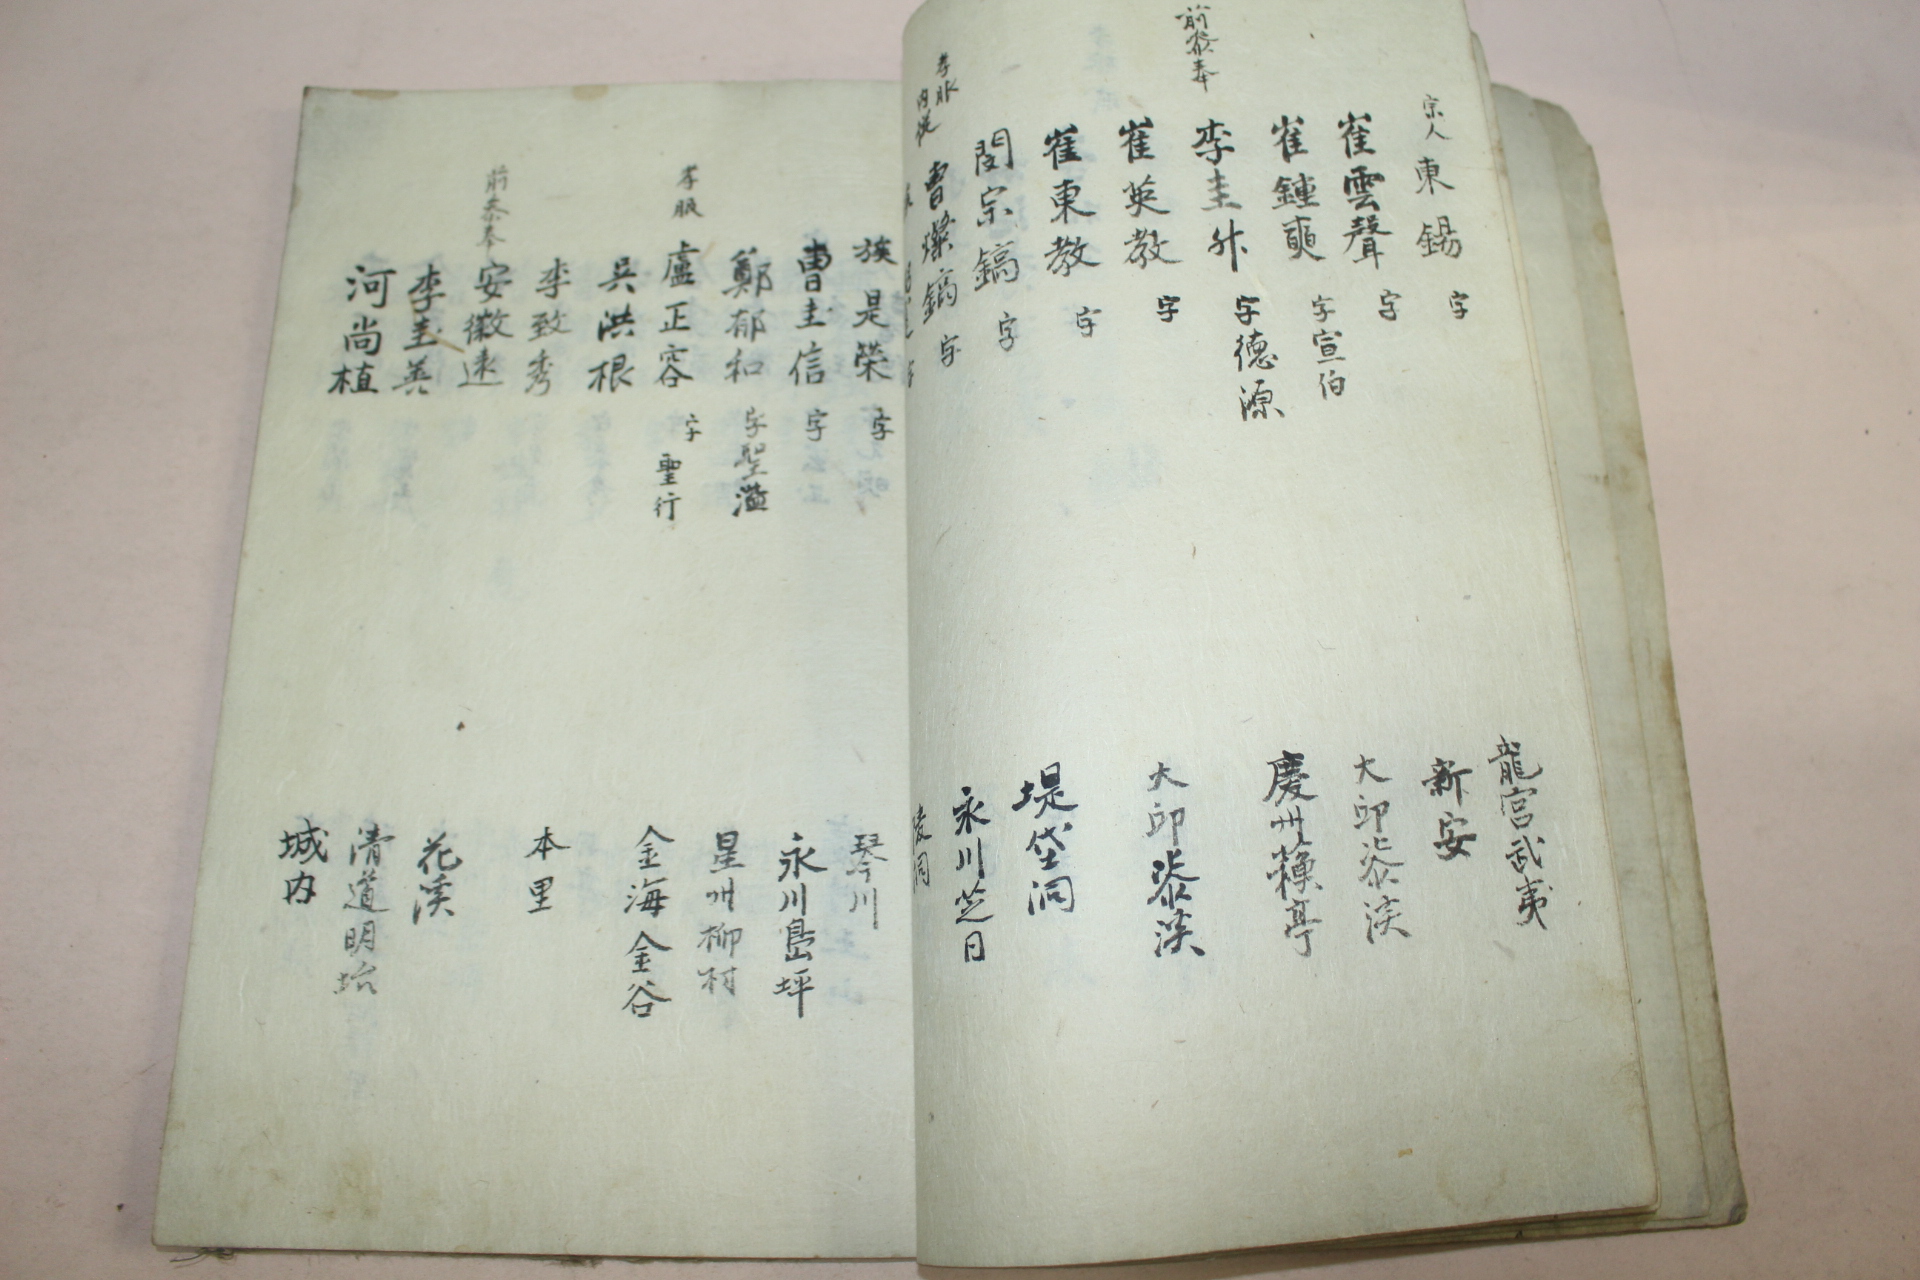 宗人 東錫 字 龍宮武夷
崔雲聲 字 新安
崔鍾奭 字宣伯 大邱漆溪
前參奉 李圭升 字德源 慶州蘓亭
崔英教 字 大邱漆溪
崔東教 字
閔宗鎬 字 堤垈洞
孝服 內從 曺燦鎬 字 永川芝日
族是榮 字 琴川
曺圭信 字 永川島坪
鄭郁和 字聖灎 星州柳村
孝服 盧正容 字聖行 金海金谷
吳洪根
李致秀 本里
前參奉 安徽遠
李圭英 花溪
河尚植 清道明坮
城內